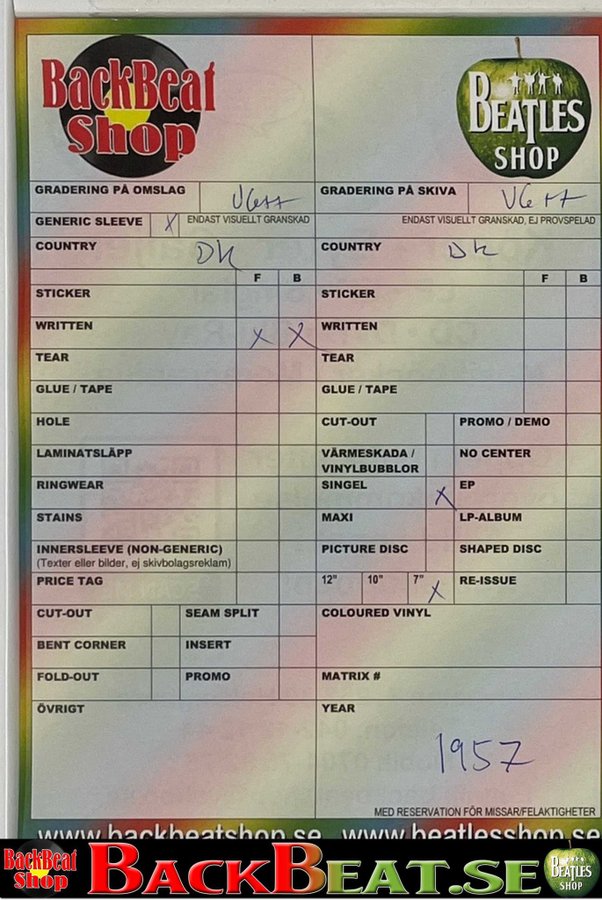 BackBeat
Shop
BEATLES
SHOP
GRADERING PÅ OMSLAG VG++
GRADERING PÅ SKIVA VG++
GENERIC SLEEVE X ENDAST VISUELLT GRANSKAD
ENDAST VISUELLT GRANSKAD, EJ PROVSPELAD
COUNTRY DK
COUNTRY DK
F B
F B
STICKER
STICKER
WRITTEN X X
WRITTEN
TEAR
TEAR
GLUE / TAPE
GLUE / TAPE
HOLE
CUT-OUT PROMO / DEMO
LAMINATSLÄPP
VÄRMESKADA / VINYLBUBBLOR NO CENTER
RINGWEAR
SINGEL X EP
STAINS
MAXI LP-ALBUM
INNERSLEEVE (NON-GENERIC)
(Texter eller bilder, ej skivbolagsreklam)
PICTURE DISC SHAPED DISC
PRICE TAG
12" 10" 7" X RE-ISSUE
CUT-OUT SEAM SPLIT
COLOURED VINYL
BENT CORNER INSERT
FOLD-OUT PROMO
MATRIX #
ÖVRIGT
YEAR
1957
MED RESERVATION FÖR MISSAR/FELAKTIGHETER
www.backbeatshop.se www.beatlesshop.se
BackBeat
Shop
BACKBEAT.SE
BEATLES
SHOP